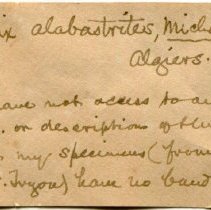 ix alabastrites, Mich
Algiers.
have not access to au
. or descriptions of the
my specimens (from
. Tryon) have no band